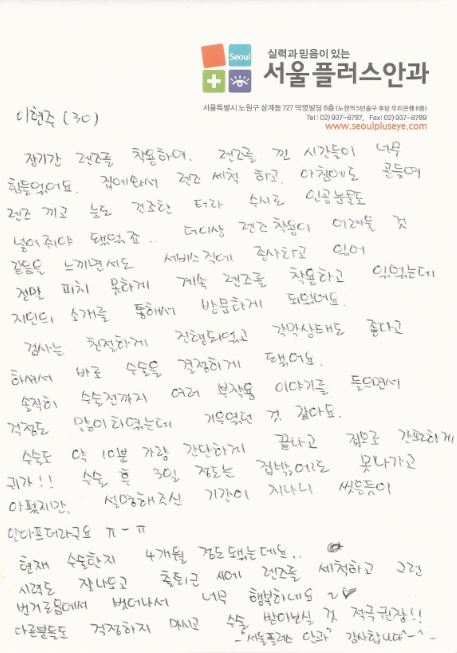 Seoul
실력과 믿음이 있는
서울플러스안과
서울특별시 노원구 상계동 727 덕영빌딩 6층 (노원역 5번출구 후방 우리은행 6층)
Tel : 02) 937-8787, Fax: 02) 937-8789
www.seoulpluseye.com
이현주 (30)
장기간 렌즈를 착용하여. 렌즈를 낀 시간들이 너무
힘들었어요. 집에와서 렌즈 세척 하고, 아침에도 곤들여
렌즈 끼고 눈도 건조한 터라 수시로 인공눈물도
넣어줘야 됐었죠.. 더이상 렌즈 착용이 어려울 것
같음을 느끼면서도 서비스직에 종사하고 있어
전말 피치 못하게 계속 렌즈를 착용하고 있었는데
지인의 소개를 통해서 방문하게 되었어요.
검사는 친절하게 진행되었고 각막상태도 좋다고
하셔서 바로 수술을 결정하게 됐어요.
솔직히 수술전까지 여러 부작용 이야기를 들으면서
걱정도 많이하였는데 기우였던 것 같아요.
수술도 약 10분 가량 간단하게 끝나고 집으로 간편하게
귀가!! 수술 후 3일 정도는 집밖에도 못나가고
아팠지만, 설명해주신 기간이 지나니 씻은듯이
안아프더라구요 ㅠ-ㅠ
현재 수술한지 4개월 정도 됐는데요..
시력도 잘나오고 출퇴근 시에 렌즈를 세척하고 그런
번거로움에서 벗어나서 너무 행복하네요 ~♡
다른분들도 걱정하지 마시고 수술 받아보실 것 적극권장!!
-"서울플러스 안과" 감사합니다^-^-